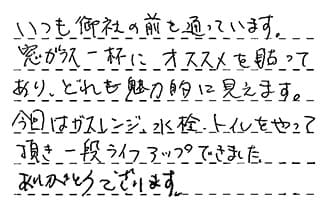 いつも御社の前を通っています。
窓ガラス一杯に オススメを貼って
あり、どれも魅力的に見えます。
今回はガスレンジ、水栓、トイレをやって
頂き一段ライフアップできました
ありがとうございます。